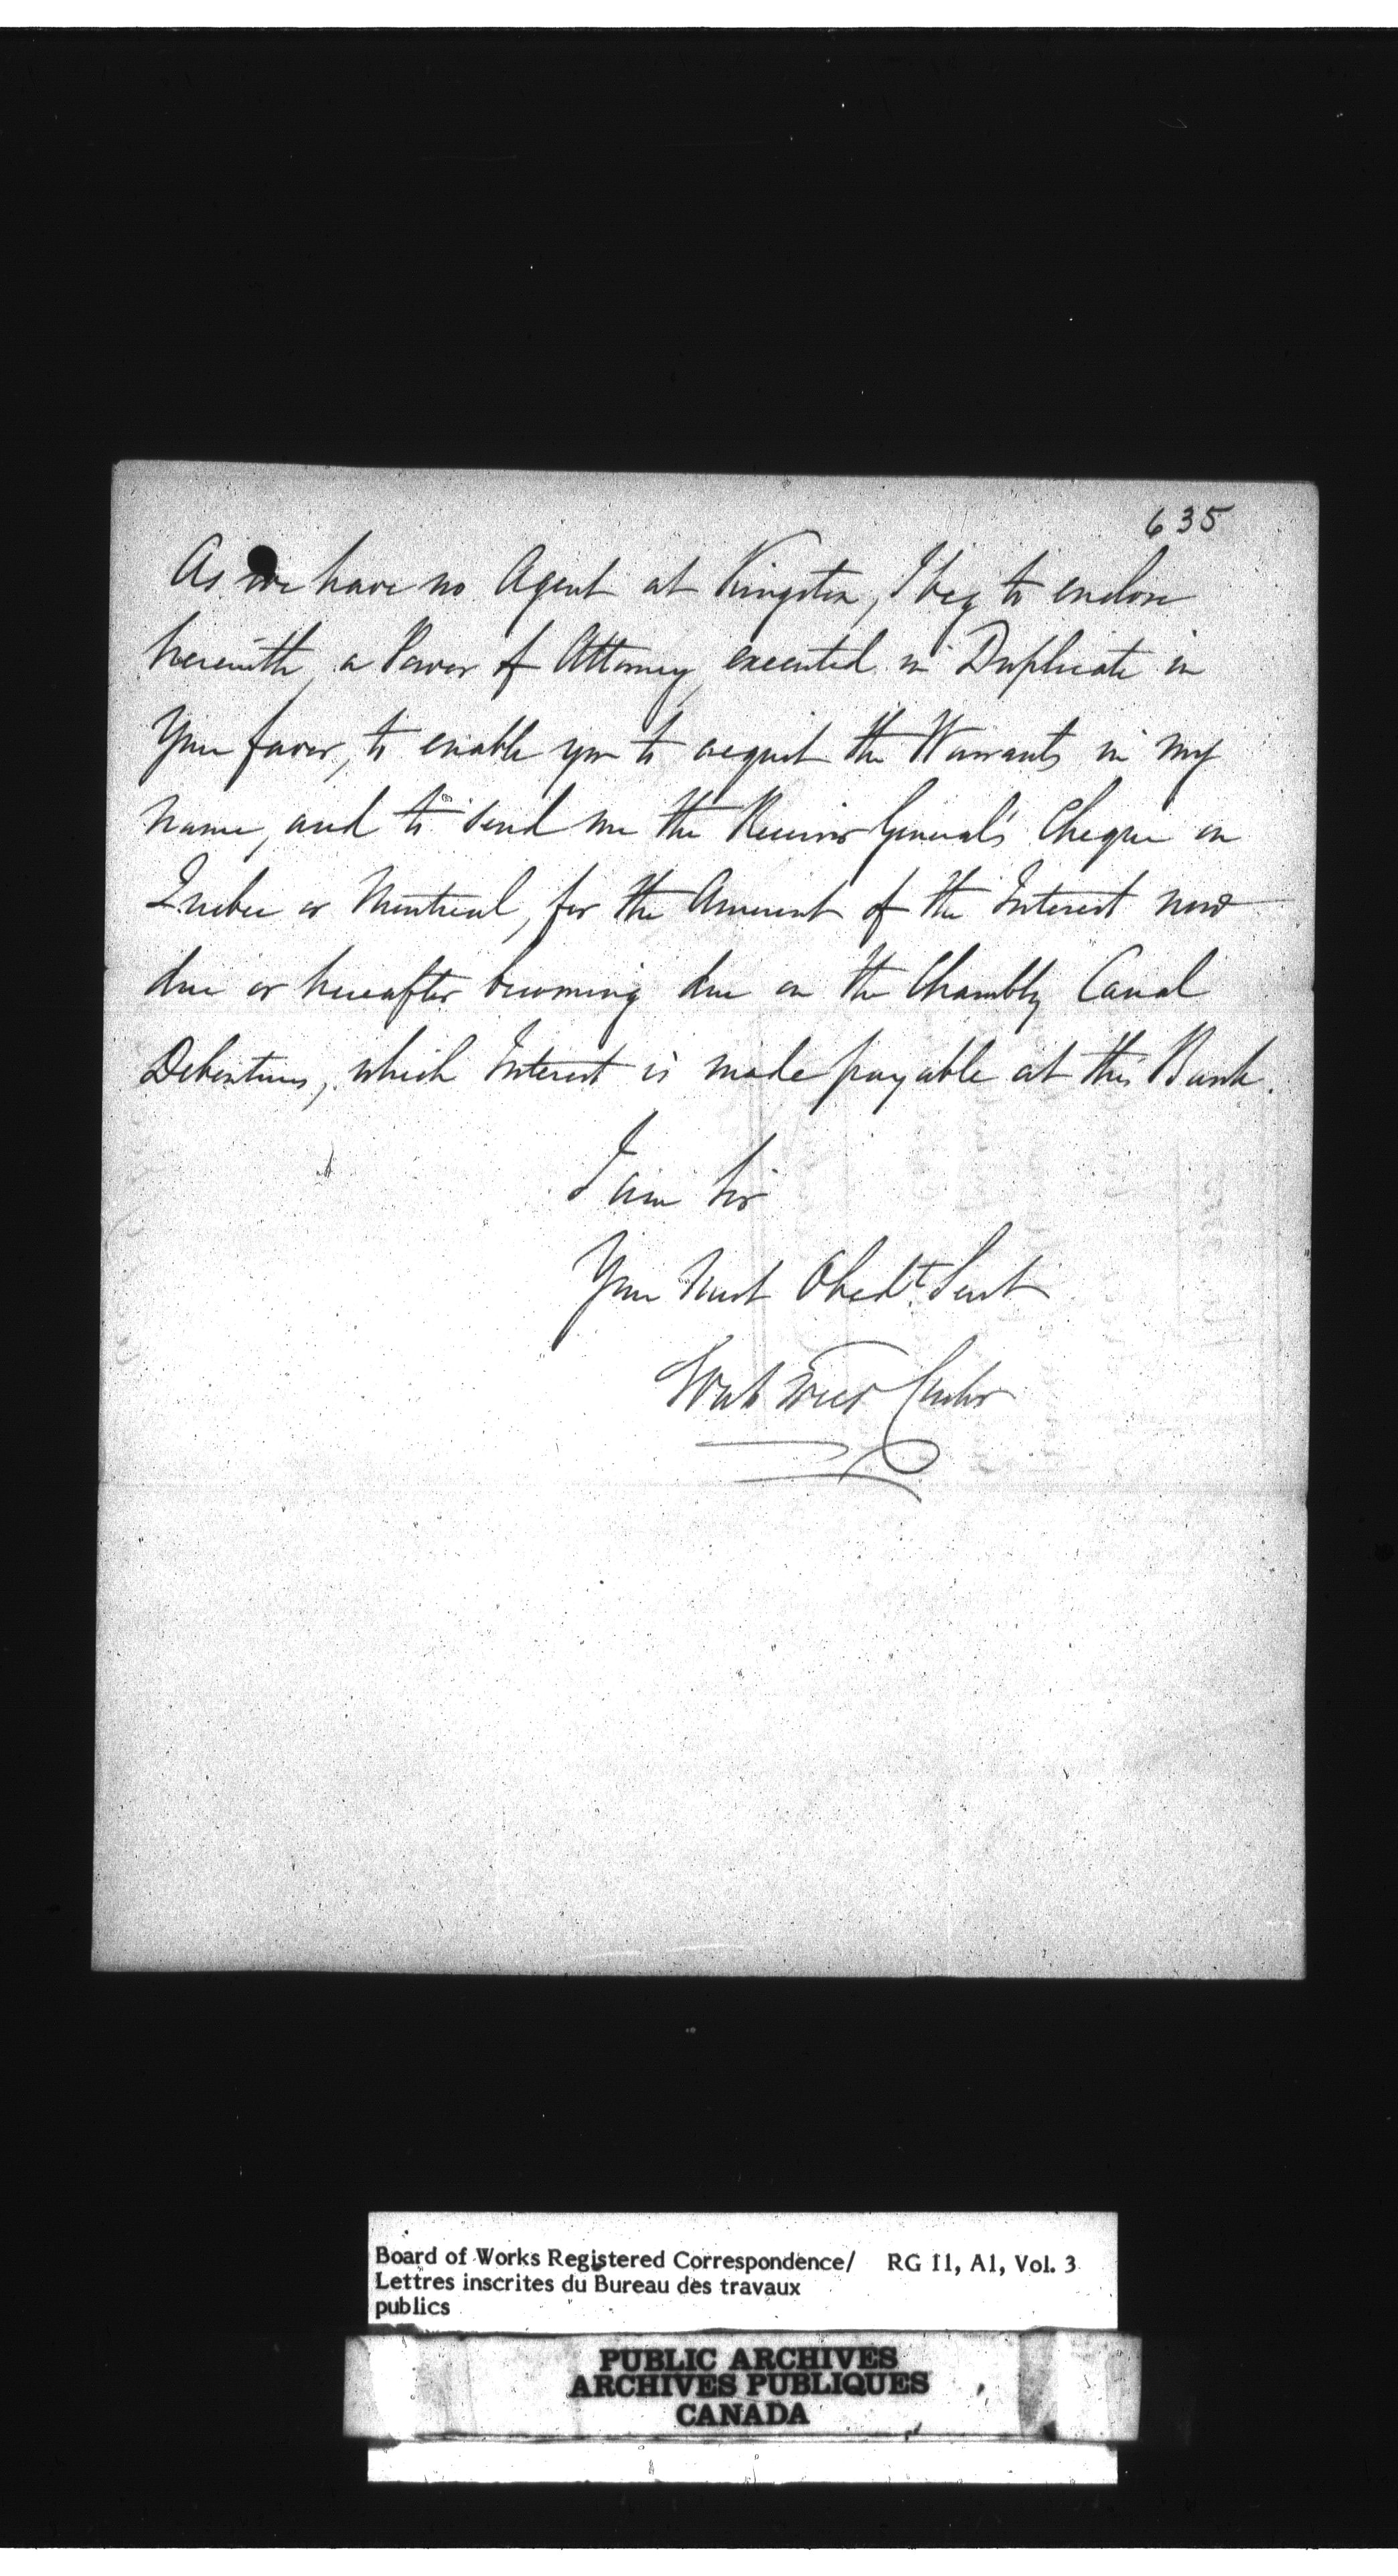 635
As we have no Agent at Kingston, I beg to enclose
herewith, a Power of Attorney, executed in Duplicate in
Your favor, to enable you to acquit the Warrants in my
name, and to send me the Receiver General's Cheque on
Quebec or Montreal, for the Amount of the Interest now
due or hereafter becoming due on the Chambly Canal
Debentures, which Interest is made payable at this Bank.
I am Sir
Your Most Obedt. Servt
Cashr
Board of Works Registered Correspondence/ RG 11, A1, Vol. 3
Lettres inscrites du Bureau des travaux
publics
PUBLIC ARCHIVES
ARCHIVES PUBLIQUES
CANADA